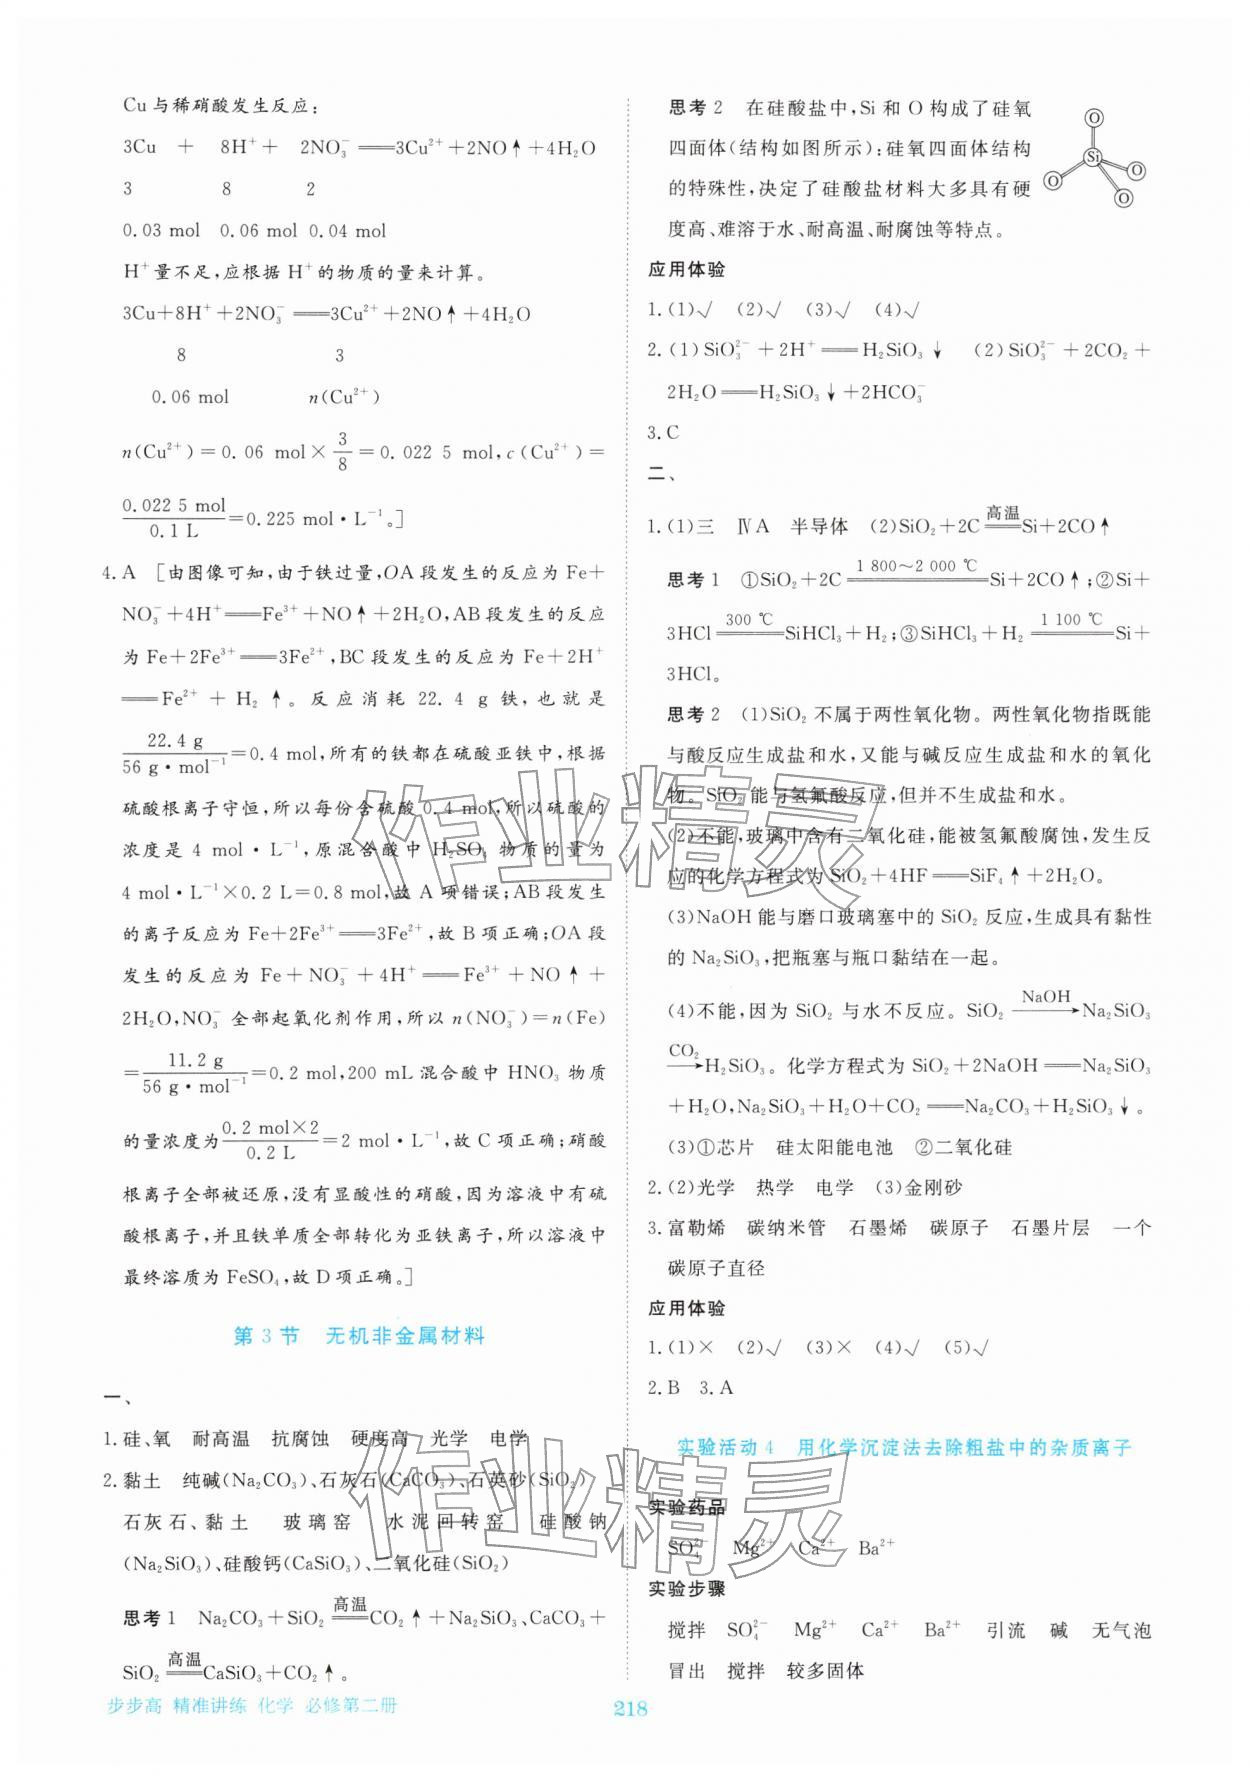 Cu与稀硝酸发生反应:
3Cu + 8H⁺ + 2NO₃⁻══3Cu²⁺+2NO↑+4H₂O
3 8 2
0.03 mol 0.06 mol 0.04 mol
H⁺量不足,应根据 H⁺的物质的量来计算。
3Cu+8H⁺+2NO₃⁻══3Cu²⁺+2NO↑+4H₂O
8 3
0.06 mol n(Cu²⁺)
n(Cu²⁺)=0.06 mol×3/8=0.022 5 mol,c(Cu²⁺)=
0.022 5 mol/0.1 L=0.225 mol·L⁻¹。]
4.A [由图像可知,由于铁过量,OA段发生的反应为Fe+
NO₃⁻+4H⁺══Fe³⁺+NO↑+2H₂O,AB段发生的反应
为Fe+2Fe³⁺══3Fe²⁺,BC段发生的反应为Fe+2H⁺
══Fe²⁺+H₂↑。反应消耗22.4 g铁,也就是
22.4 g/56 g·mol⁻¹=0.4 mol,所有的铁都在硫酸亚铁中,根据
硫酸根离子守恒,所以每份含硫酸0.4 mol,所以硫酸的
浓度是4 mol·L⁻¹,原混合酸中H₂SO₄物质的量为
4 mol·L⁻¹×0.2 L=0.8 mol,故A项错误;AB段发生
的离子反应为Fe+2Fe³⁺══3Fe²⁺,故B项正确;OA段
发生的反应为Fe+NO₃⁻+4H⁺══Fe³⁺+NO↑+
2H₂O,NO₃⁻全部起氧化剂作用,所以n(NO₃⁻)=n(Fe)
=11.2 g/56 g·mol⁻¹=0.2 mol,200 mL混合酸中HNO₃物质
的量浓度为0.2 mol×2/0.2 L=2 mol·L⁻¹,故C项正确;硝酸
根离子全部被还原,没有显酸性的硝酸,因为溶液中有硫
酸根离子,并且铁单质全部转化为亚铁离子,所以溶液中
最终溶质为FeSO₄,故D项正确。]
第3节 无机非金属材料
一、
1.硅、氧 耐高温 抗腐蚀 硬度高 光学 电学
2.黏土 纯碱(Na₂CO₃)、石灰石(CaCO₃)、石英砂(SiO₂)
石灰石、黏土 玻璃窑 水泥回转窑 硅酸钠
(Na₂SiO₃)、硅酸钙(CaSiO₃)、二氧化硅(SiO₂)
思考1 Na₂CO₃+SiO₂ 高温══ CO₂↑+Na₂SiO₃、CaCO₃+
SiO₂ 高温══ CaSiO₃+CO₂↑。
步步高 精准讲练 化学 必修第二册
思考2 在硅酸盐中,Si和O构成了硅氧
四面体(结构如图所示);硅氧四面体结构
的特殊性,决定了硅酸盐材料大多具有硬
度高、难溶于水、耐高温、耐腐蚀等特点。
O
Si
O
O
O
应用体验
1.(1)√ (2)√ (3)√ (4)√
2.(1)SiO₃²⁻+2H⁺══H₂SiO₃↓ (2)SiO₃²⁻+2CO₂+
2H₂O══H₂SiO₃↓+2HCO₃⁻
3.C
二、
1.(1)三 ⅣA 半导体 (2)SiO₂+2C 高温══ Si+2CO↑
思考1 ①SiO₂+2C 1 800~2 000 ℃══ Si+2CO↑;②Si+
3HCl 300 ℃══ SiHCl₃+H₂;③SiHCl₃+H₂ 1 100 ℃══ Si+
3HCl。
思考2 (1)SiO₂不属于两性氧化物。两性氧化物指既能
与酸反应生成盐和水,又能与碱反应生成盐和水的氧化
物。SiO₂能与氢氟酸反应,但并不生成盐和水。
(2)不能,玻璃中含有二氧化硅,能被氢氟酸腐蚀,发生反
应的化学方程式为SiO₂+4HF══SiF₄↑+2H₂O。
(3)NaOH能与磨口玻璃塞中的SiO₂反应,生成具有黏性
的Na₂SiO₃,把瓶塞与瓶口黏结在一起。
(4)不能,因为SiO₂与水不反应。SiO₂ NaOH→ Na₂SiO₃
CO₂→ H₂SiO₃。化学方程式为SiO₂+2NaOH══Na₂SiO₃
+H₂O,Na₂SiO₃+H₂O+CO₂══Na₂CO₃+H₂SiO₃↓。
(3)①芯片 硅太阳能电池 ②二氧化硅
2.(2)光学 热学 电学 (3)金刚砂
3.富勒烯 碳纳米管 石墨烯 碳原子 石墨片层 一个
碳原子直径
应用体验
1.(1)× (2)√ (3)× (4)√ (5)√
2.B 3.A
实验活动4 用化学沉淀法去除粗盐中的杂质离子
实验药品
SO₄²⁻ Mg²⁺ Ca²⁺ Ba²⁺
实验步骤
搅拌 SO₄²⁻ Mg²⁺ Ca²⁺ Ba²⁺ 引流 碱 无气泡
冒出 搅拌 较多固体
218
作业精灵
作业精灵